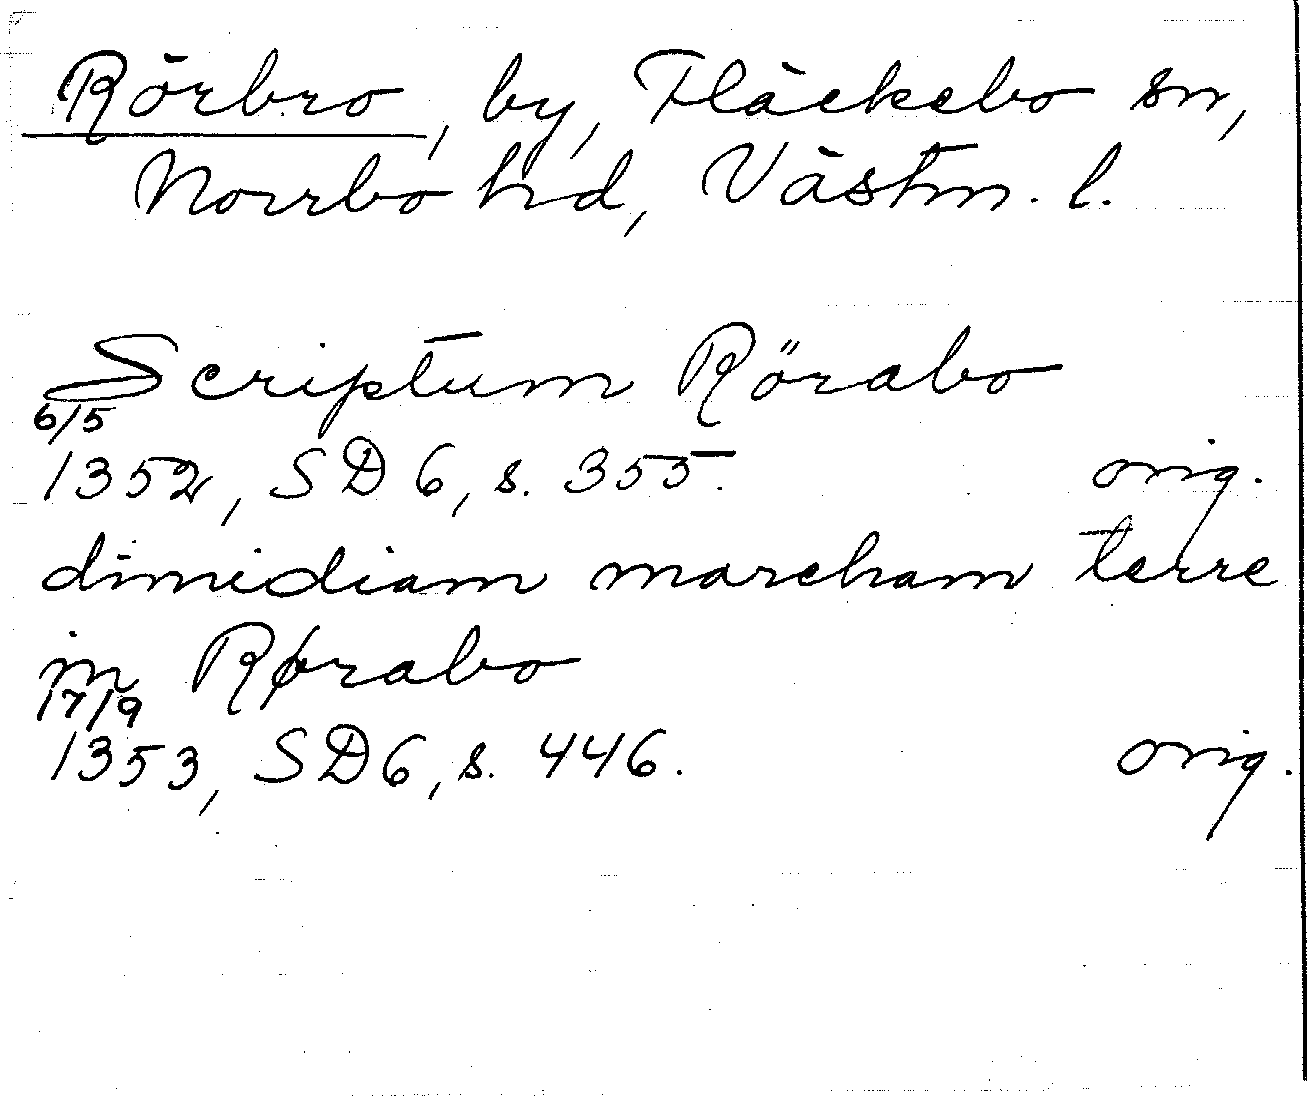 Rörbro, by, Fläckebo sn,
Norrbo hd, Västm. l.
Scriptum Rörabo
6/5
1352, SD 6, s. 355. orig.
dimidiam marcham terre
in Rørabo
17/9
1353, SD 6, s. 446. orig.